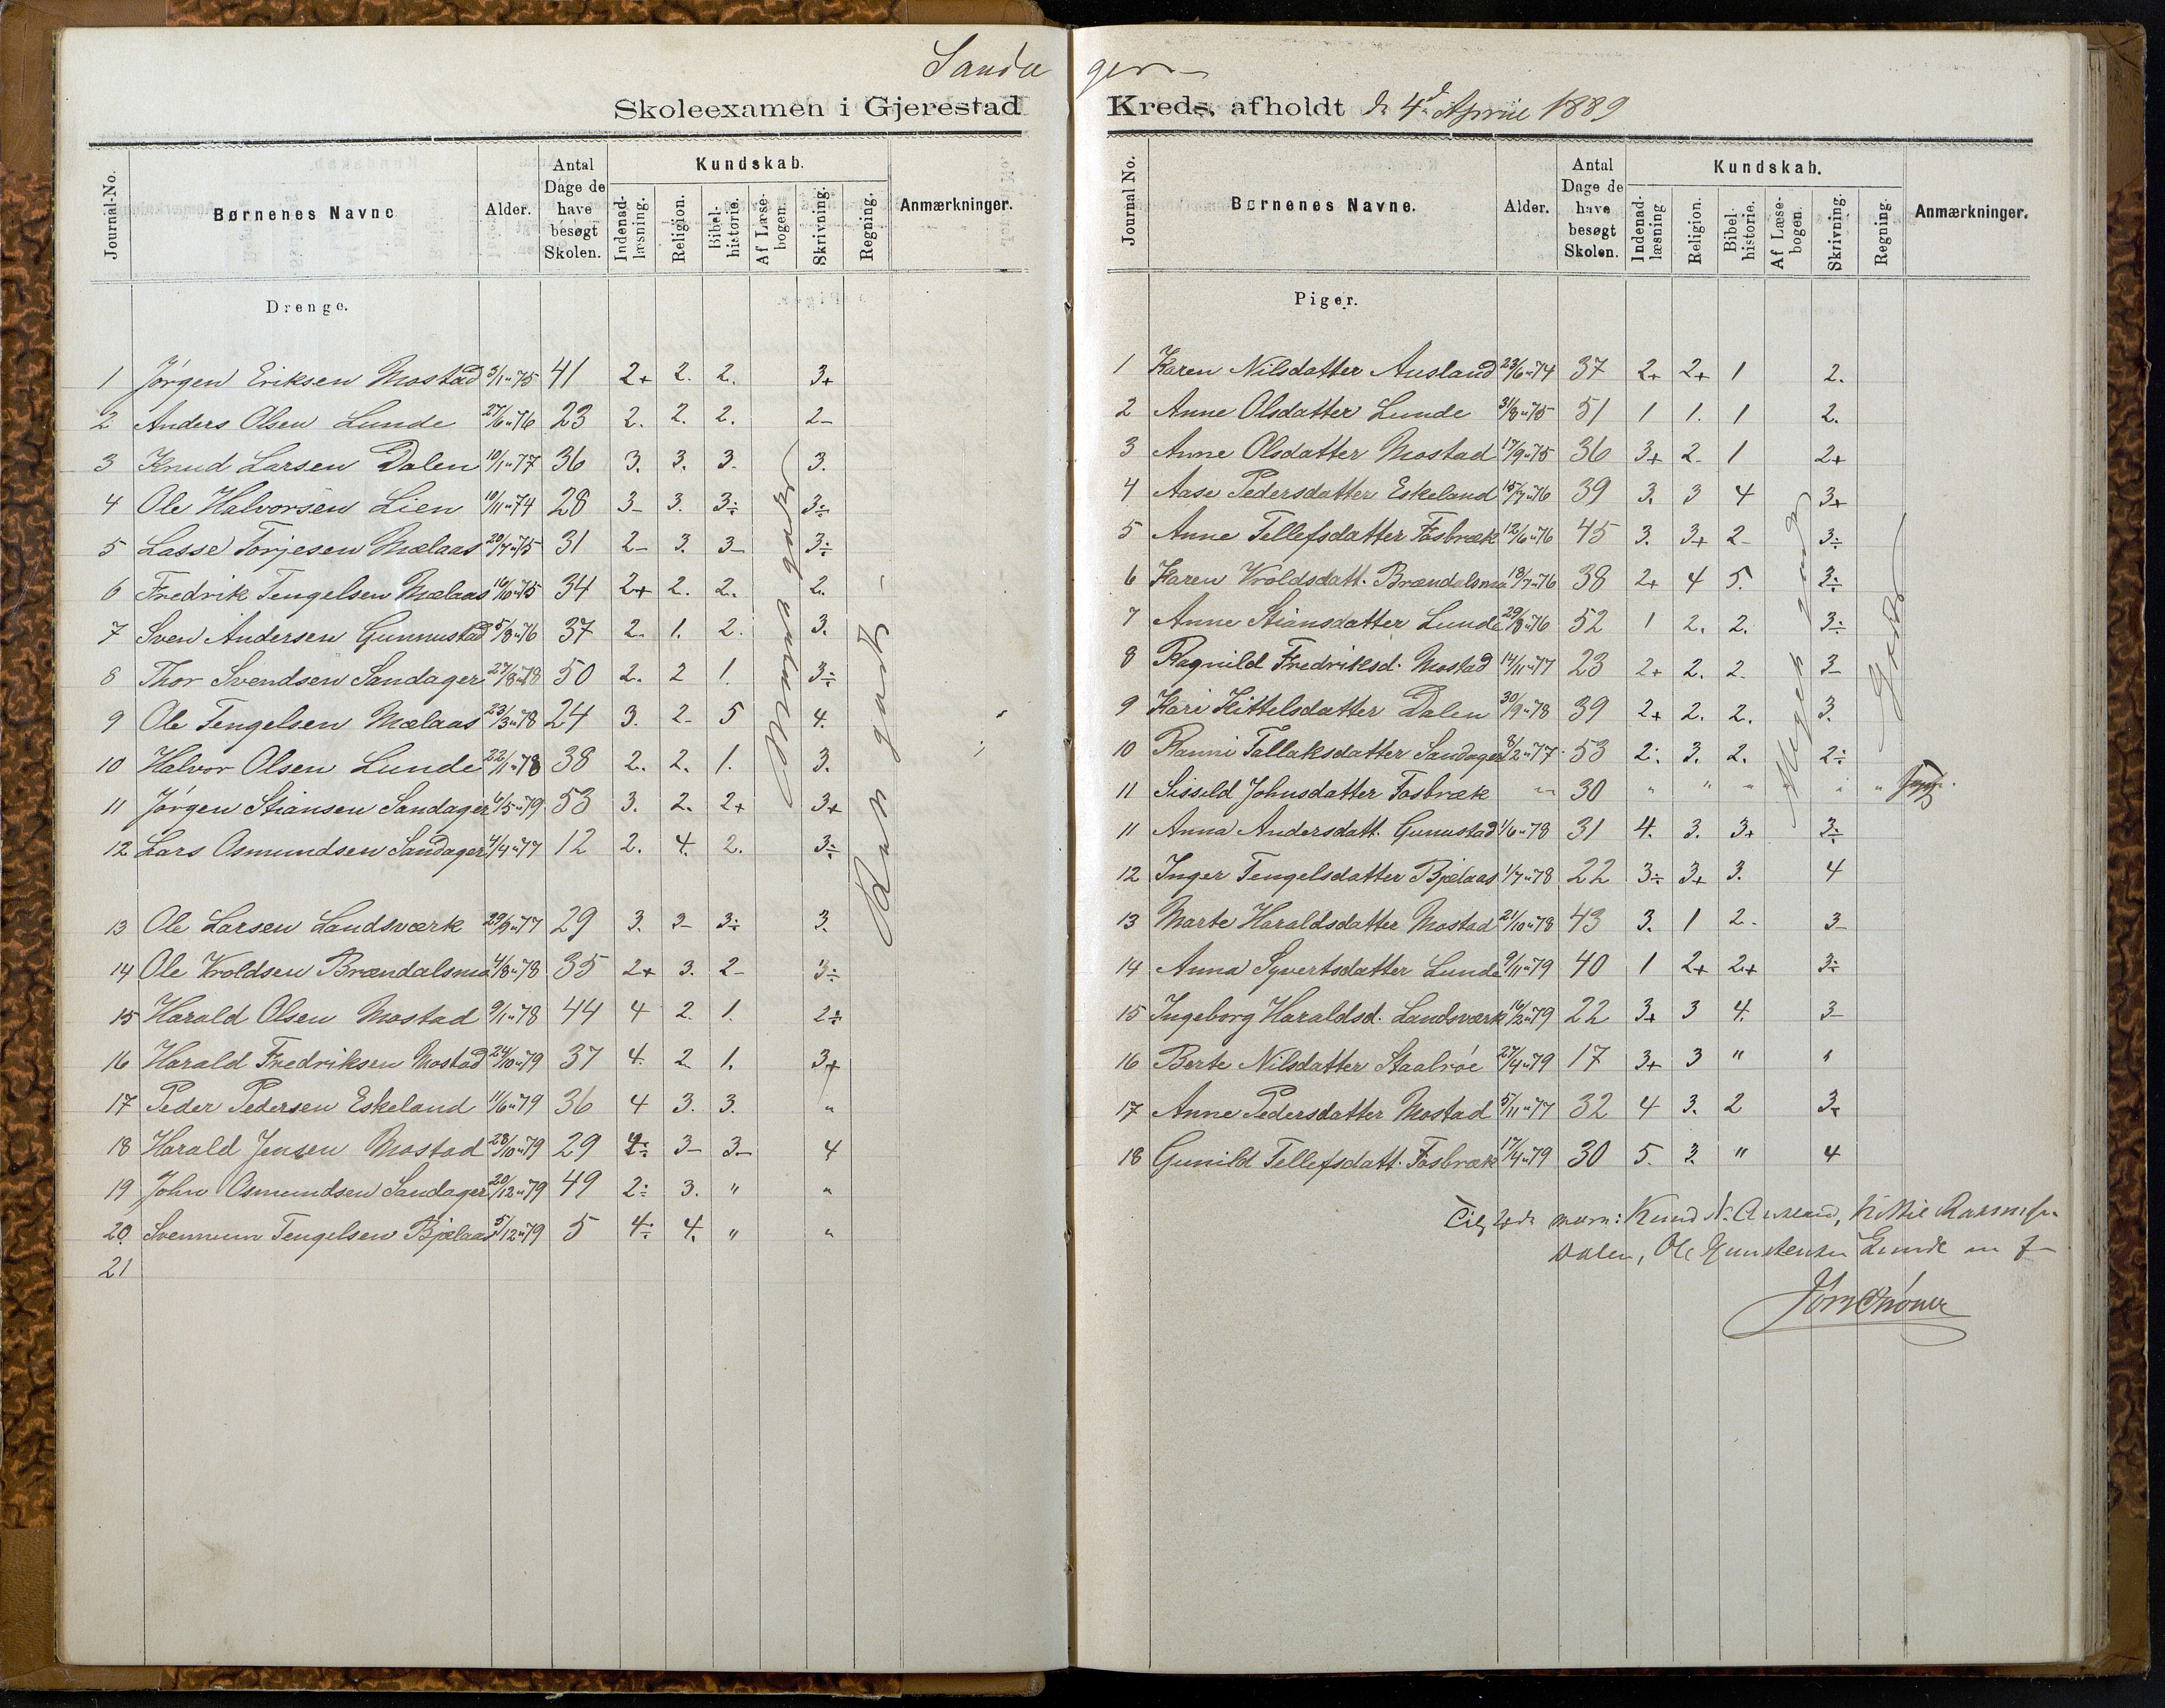 Sandager
Skoleexamen i Gjerestad Kreds, afholdt d. 4d April 1889
Journal-No. Børnenes Navne Alder. Antal Dage de have besøgt Skolen. Kundskab. Indenad-læsning. Religion. Bibel-historie. Af Læse-bogen. Skrivning. Regning. Anmærkninger.
Drenge.
1 Jørgen Eriksen Mostad 3/1 "75 41 2+ 2. 2. 3+
2 Anders Olsen Lunde 27/6 "76 23 2. 2. 2. 2-
3 Knud Larsen Dalen 10/1 "77 36 3. 3. 3- 3.
4 Ole Halvorsen Lien 10/11 "74 28 3- 3. 3÷ 3÷
5 Lasse Torjesen Mælaas 20/7 "75 31 2- 3. 3- 3÷
6 Fredrik Tengelsen Mælaas 16/10 "75 34 2+ 2. 2. 2.
7 Sven Andersen Gunnustad 5/8 "76 37 2. 1. 2. 3.
8 Thor Svendsen Sandager 27/8 "78 50 2. 2 1. 3÷
9 Ole Tengelsen Mælaas 23/3 "78 24 3. 2- 5 4.
10 Halvor Olsen Lunde 22/11 "78 38 2. 2. 1. 3.
11 Jørgen Stiansen Sandager 6/5 "79 53 3. 2. 2+ 3+
12 Lars Osmundsen Sandager 4/4 "77 12 2. 4. 2. 3÷
13 Ole Larsen Landsværk 29/9 "77 29 3. 3- 3÷ 3.
14 Ole Vroldsen Brændalsmo 4/8 "78 35 2+ 3. 2- 3÷
15 Harald Olsen Mostad 9/1 "78 44 4 2. 1. 2÷
16 Harald Fredriksen Mostad 24/10 "79 37 4. 2 1. 3+
17 Peder Pedersen Eskeland 11/6 "79 36 4 3. 3. "
18 Harald Jensen Mostad 28/10 "79 29 4÷ 3- 3- 4
19 John Osmundsen Sandager 20/12 "79 49 2÷ 3. " "
20. Svennum Tengelsen Bjelaas 5/12 "79 5 4÷ 4. " "
21
godt
Kun godt -
Journal No. Børnenes Navne. Alder. Antal Dage de have besøgt Skolen. Kundskab. Indenad-læsning Religion. Bibel-historie. Af Læse-bogen. Skrivning. Regning. Anmærkninger.
Piger.
1 Karen Nilsdatter Ausland 23/6 "74 37 2+ 2+ 1 2.
2 Anne Olsdatter Lunde 31/8 "75 51 1 1. 1 2.
3 Anne Olsdatter Mostad 17/9 "75 36 3+ 2- 1 2+
4 Aase Pedersdatter Eskeland 15/7 "76 39 3. 3 4 3+
5 Anne Tellefsdatter Fosbræk 12/6 "76 45 3. 3+ 2- 3÷
6 Karen Vroldsdatt. Brændalsmo 18/7 "76 38 2+ 4 5. 3÷
7 Anne Stiansdatter Lunde 29/8 "76 52 1 2. 2. 3÷
8 Ragnild Fredriksd. Mostad 14/11 "77 23 2+ 2. 2- 3-
9 Kari Kittelsdatter Dalen 30/9 "78 39 2+ 2. 2. 3.
10 Ranni Tallaksdatter Sandager 8/2 "77 53 2. 3. 2. 2÷
11 Sissild Johnsdatter Fosbræk " 30 " " " " "
11 Anna Andersdatt. Gunustad 1/6 "78 31 4. 3. 3+ 3÷
12 Inger Tengelsdatter Bjelaas 1/7 "78 22 3÷ 3+ 3. 4
13 Marte Haraldsdatter Mostad 21/10 "78 43 3. 1 2- 3-
14 Anna Syvertsdatter Lunde 9/11 "79 40 1 2+ 2+ 3÷
15 Ingeborg Haraldsd. Landsværk 16/2 "79 22 3+ 3 4. 3-
16 Berte Nilsdatter Staalrøe 27/4 "79 17 3+ 3 " "
17 Anne Pedersdatter Mostad 5/11 "77 32 4 3. 2 3+
18 Gunild Tellefsdatt. Fosbræk 17/4 "79 30 5. 3. " 4
Meget godt
Godt
Knud N. Ausland,
Dalen, Ole Gunstensen Lunde